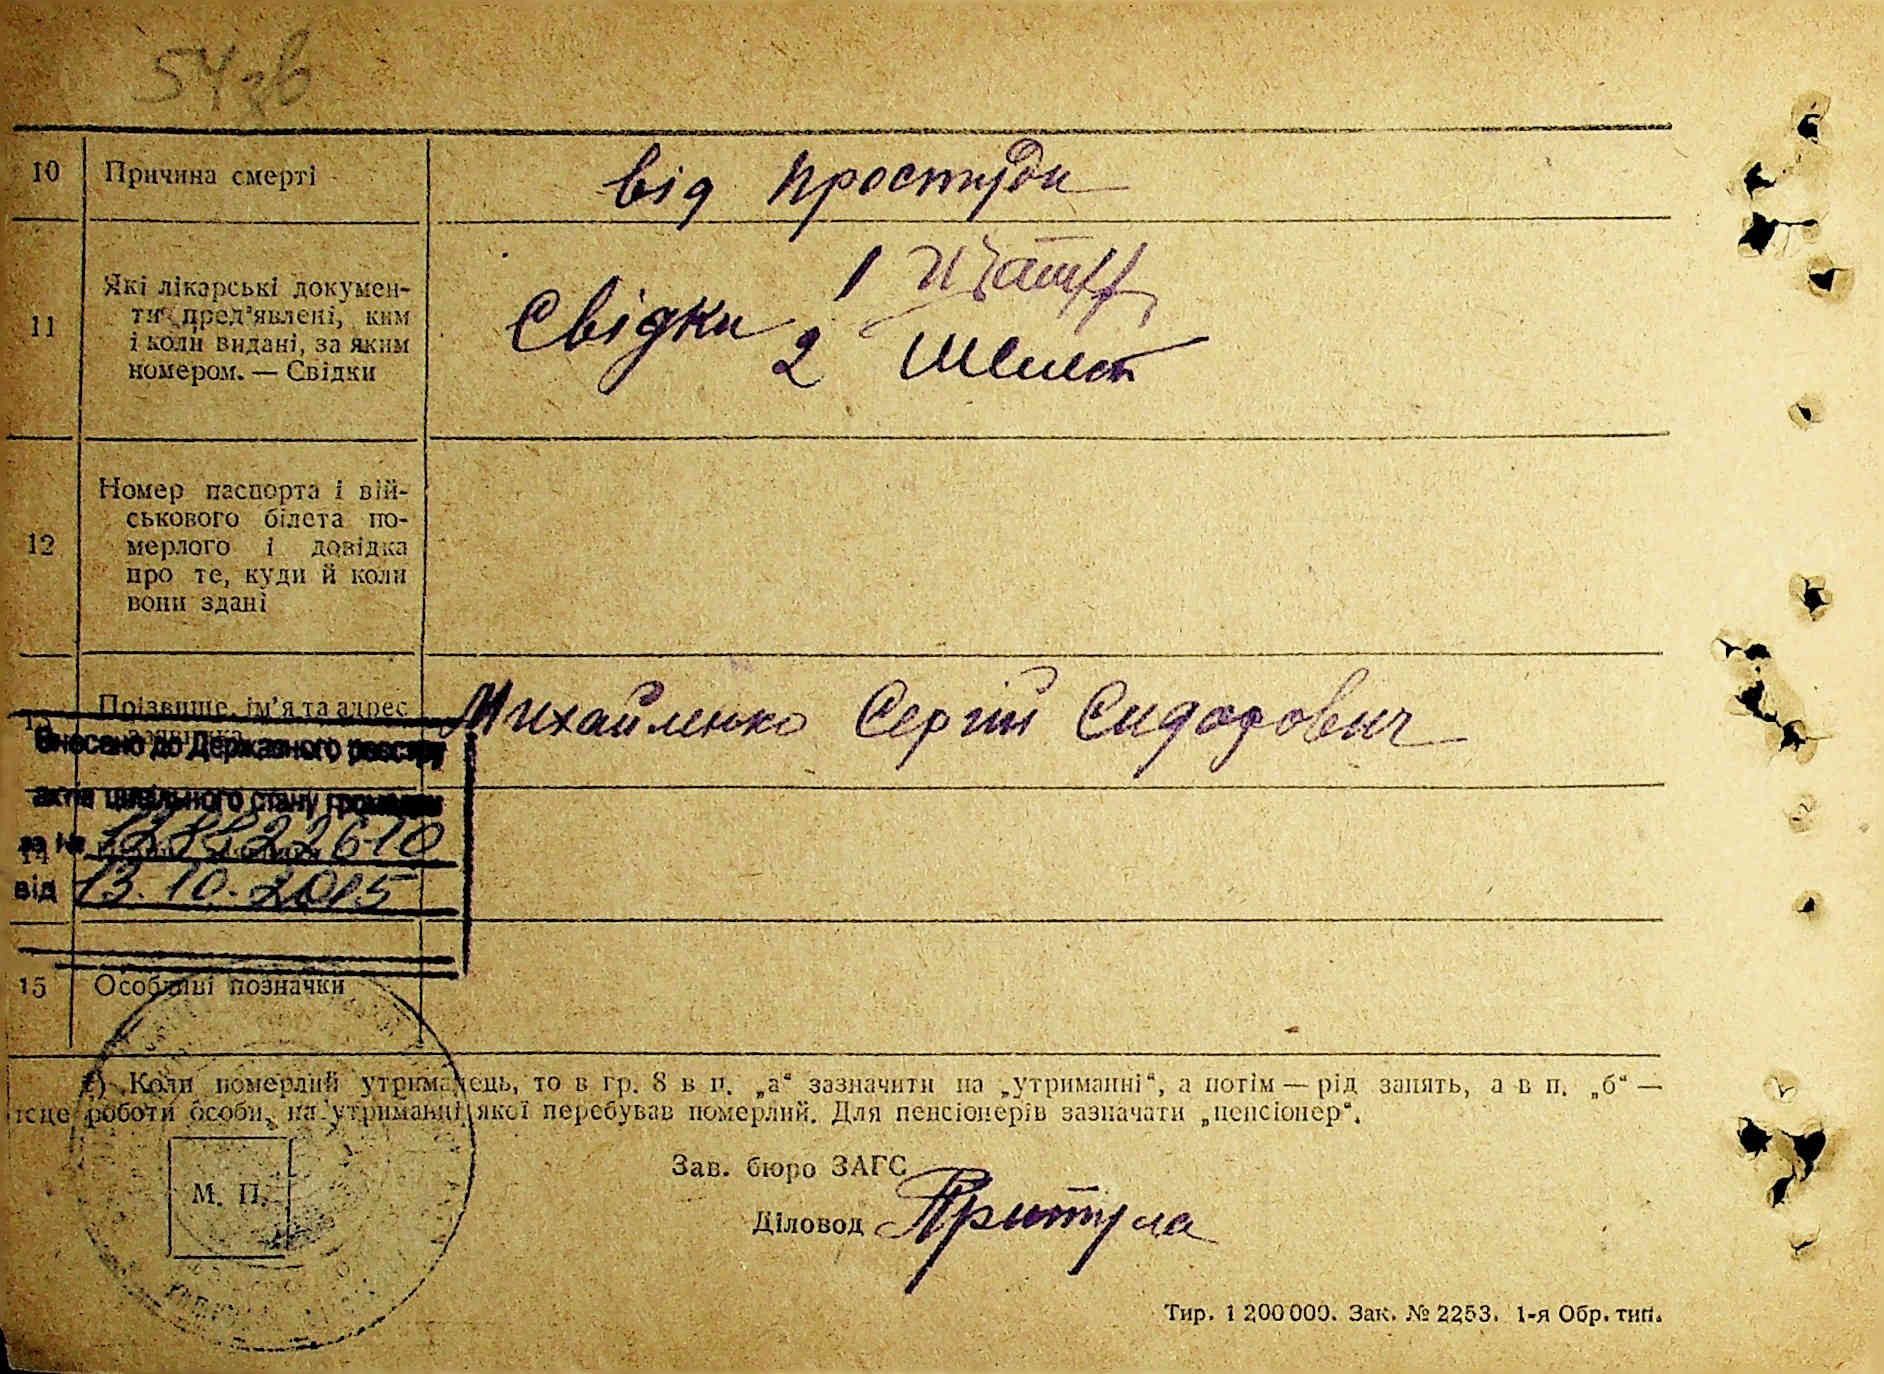 54зв
10 Причина смерті
від простуди
11 Які лікарські докумен-
ти пред'явлені, ким
і коли видані, за яким
номером. — Свідки
Свідки 1
2 Шелест
12 Номер паспорта і вій-
ськового білета по-
мерлого і довідка
про те, куди й коли
вони здані
13 Прізвище, ім'я та адрес
Михайленко Сергій Сидорович
Внесено до Державного реєстру
актів цивільного стану громадян
за № 12882261О
від 13.10.2015
14
15 Особливі позначки
Коли померлий утриманець, то в гр. 8 в п. „а“ зазначити на „утриманні“, а потім — рід занять, а в п. „б“ —
роботи особи, на утриманні якої перебував померлий. Для пенсіонерів зазначати „пенсіонер“.
М. П.
Зав. бюро ЗАГС
Діловод Притула
Тир. 1 200 000. Зак. № 2253. 1-я Обр. тип.